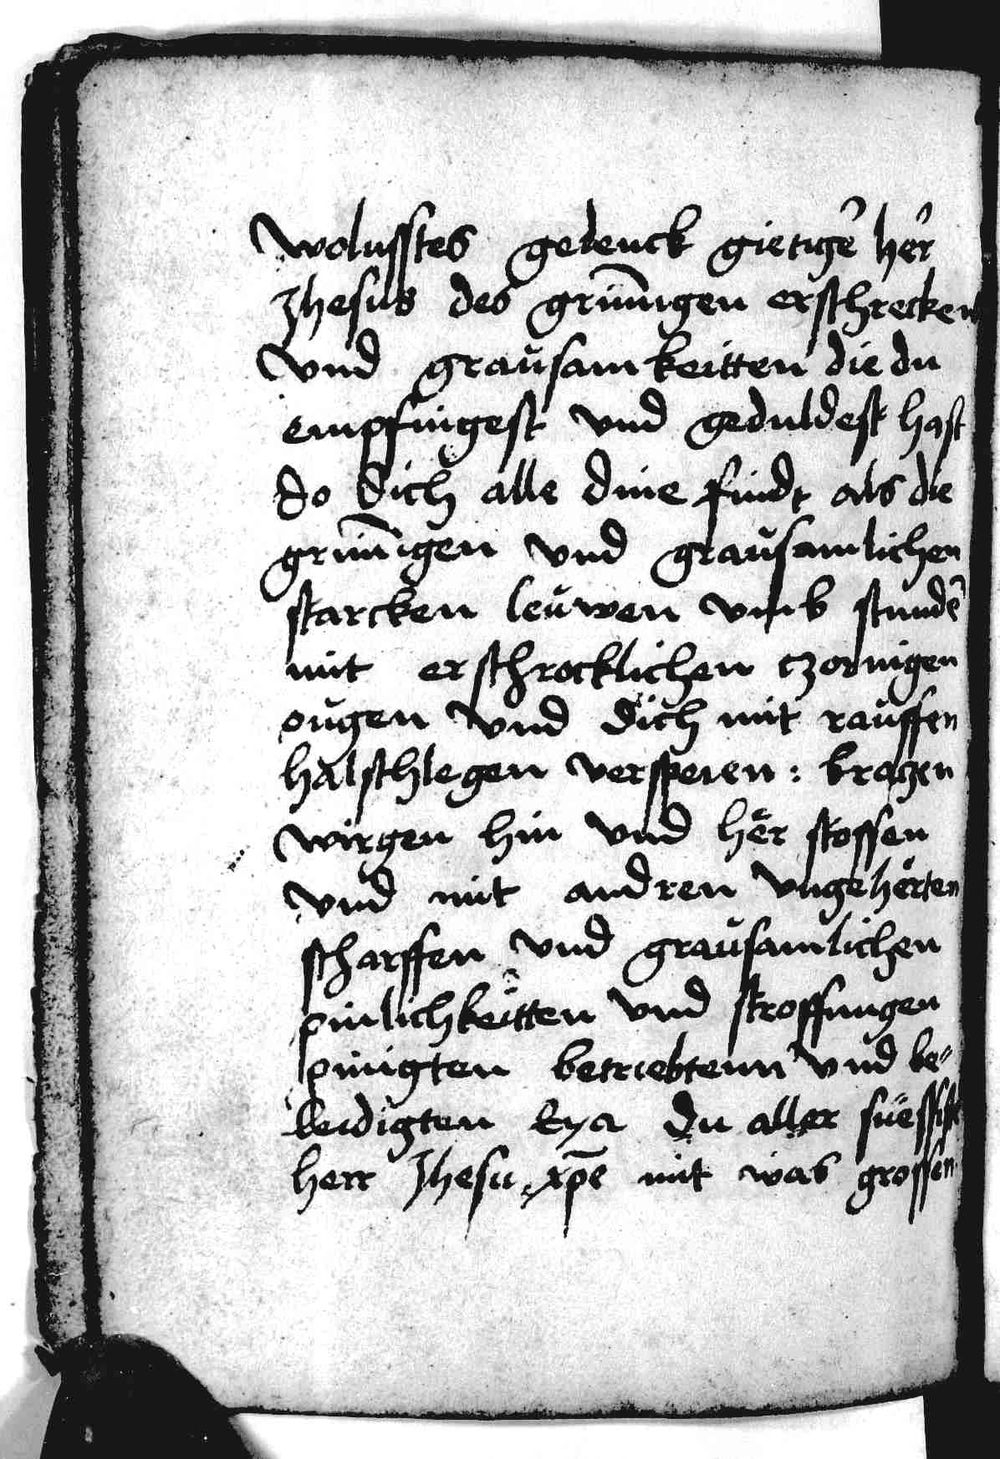 wolusstes gedenck gietigē hēr
Jhesus des grim̄igen erschrecken
vnd grausamkeitten die du
empfingest vnd geduldest hast
do dich alle dine findt als die
grim̄igen vnd grausamlichen
starcken leuwen vmb stundē
mit erschrocklichen czornigen
ougen vnd dich mit rauffen
halschlegen verspeien : kraczen
wirgen hin vnd her stossen
vnd mit andren vngehörten
scharffen vnd grausamlichen
pinlichkeitten vnd stroffungen
pinigten betriebtenn vnd be⸗
leidigten Eya du aller süessist
herr Jhesu xp̄e mit was grossen